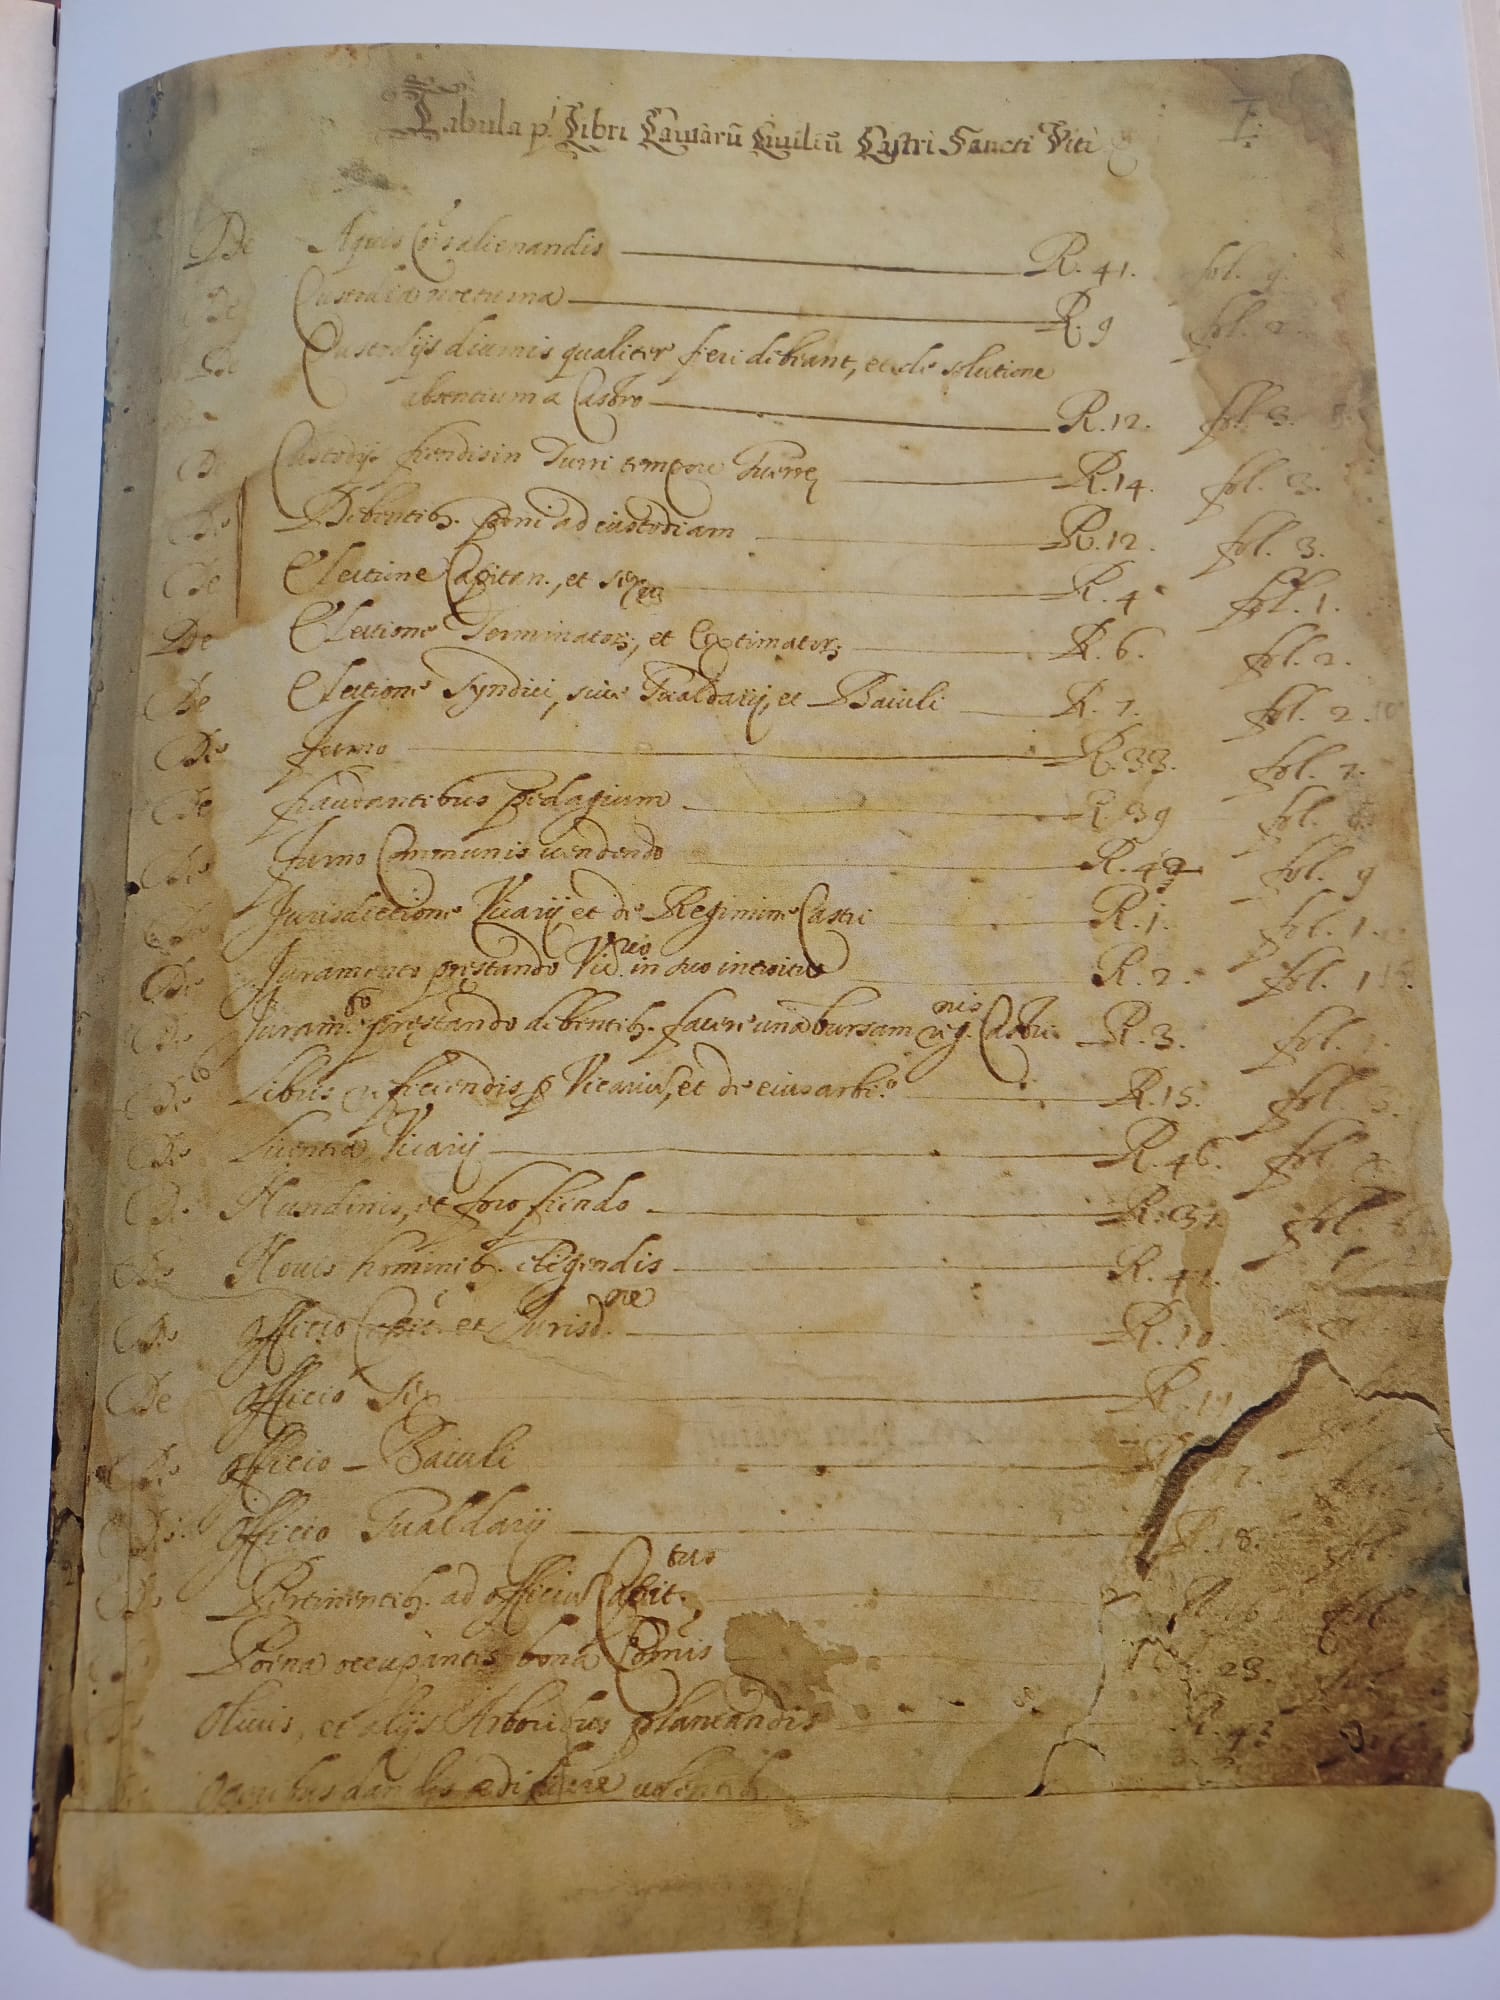 Tabula p.' Libri Causarū Ciuiliū Castri Sancti Viti
De Aquis Cōis alienandis R. 41. fol. 9.
De Custodia nocturna R. 9 fol. 2.
De Custodijs diurnis qualiter fieri debeant, et de solutione
absentium a Castro R. 12. fol. 3.
De Custodijs fiendis in Turri tempore Guerre R. 14. fol. 3.
De Debentib. poni ad custodiam R. 12. fol. 3.
De Electione Capitan., et R. 4 fol. 1.
De Electione Terminator; et Extimator; R. 6. fol. 2.
De Electione Syndici, siue Gualdarij, et Baiuli R. 7. fol. 2.
De furno R. 33. fol. 7.
De fraudantibus pedagium R. 39 fol.
De furno Communis uendendo R. 42 fol. 9
De Jurisdictione Vicarij et de Regimine Castri R. 1. fol. 1.
De Juramento prestando Vic.rio in suo introitu R. 2. fol. 1
De Juram.to prestando debentib. facere unā bursam Castri R. 3. fol.
De Libris reficiendis p Vicariū, et de eius arbi.o R. 15. fol. 3.
De Licentia Vicarij R. 46. fol.
De Nundinis, et foro fiendo R. 37. fol.
De Nouis hominib. eligendis R. 47.
De officio et Jurisd.ne R. 10.
De officio R. 11
De officio Baiuli 7.
De officio Gualdarij R. 18. fol.
De Pertinentib. ad officiū Capit. R. 16 fol.
Poena occupantis bona Comūis 23.
Oliuis, et alijs Arboribus plantandis R. 43
edificare uolentib.